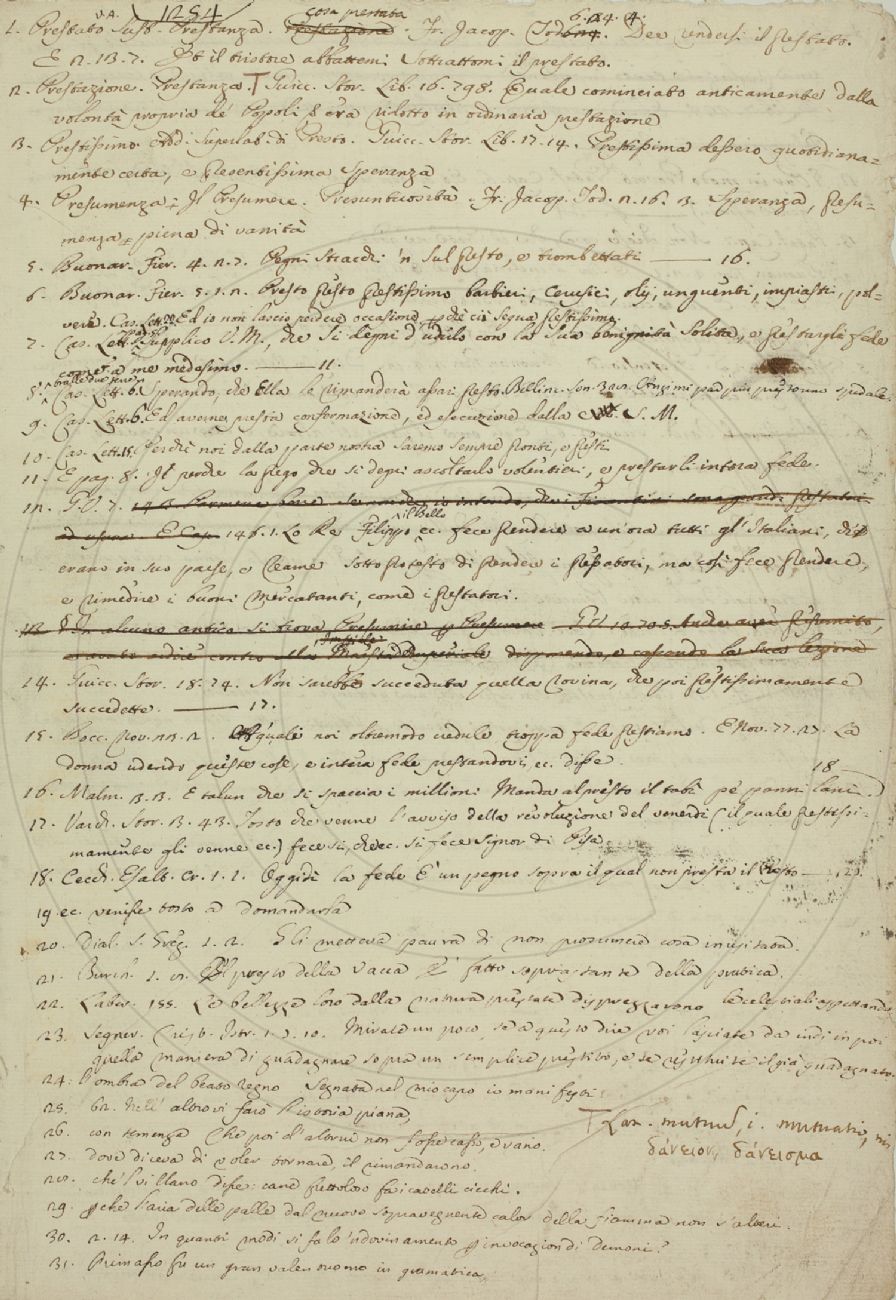 V.A. 1254
cosa prestata 6. 24. 4.
1. Prestato Sust. Prestanza. Prestazione. Fr. Jacop. Tod. Dee rendersi il prestato.
E 2. 13. 7. il tristore abbattemi Sottrattomi il prestato.
2. Prestazione. Prestanza. T Guicc. Stor. Lib. 16. 798. Quale cominciato anticamente dalla
volontà propria de' Popoli s' era ridotto in ordinaria prestazione
3. Prestissimo. Add. Superlat. di Presto. Guicc. Stor. Lib. 17. 14. Prestissima dessero quotidiana=
mente certa, e presentissima Speranza
4. Presumenza Il Presumere. Presuntuosità. Fr. Jacop. Tod. 2. 16. 3. Speranza, presu=
menza piena di vanità
5. Buonar. Fier. 4. 2. 7. Ogni straccil 'n sul presto, e trombettati —— 16.
6. Buonar. Fier. 5. 1. 2. Presto presto prestissimo barbieri, Cerusici, olij, unguenti, impiastri, pol=
vere. Cas. Lett. Ed io non lascio perdere occasione che ciò segua prestissimo.
7. Cas. Lett. Supplico V. M., che si degni d' udirlo con la sua benignità solita, e prestargli fede
come a me medesimo. —— 11.
8. Cas. Lett. 6. Sperando, che Ella le rimanderà assai presto. Bellin. Son.
9. Cas. Lett. 6. Ed averne presta confermazione, ed esecuzione dalla S. M.
10. Cas. Lett. 18. Perchè noi dalla parte nostra saremo sempre pronti, e presti
11. E pag. 8. Il perchè la priego che si degni ascoltarlo volentieri, e prestarli intera fede.
12. G. V. 7. 146. 1. Lo Re Filippo il Bello ec. fece prendere a un' ora tutti gl' Italiani, ch'
erano in suo paese, e reame sotto protesto di prendere i prestatori, ma così fece prendere,
e rimedire i buoni Mercatanti, come i prestatori.
13. In alcuno antico si trova Presumire p Presumere
contro alla Maestà Imperiale disponendo, e cassando la sua lezione
14. Guicc. Stor. 18. 74. Non sarebbe succeduta quella rovina, che poi prestissimamente
succedette. —— 17.
15. Bocc. Nov. 23. 2. A' quali noi oltremodo credule troppa fede prestiamo. E Nov. 77. 27. La
donna udendo queste cose, e intera fede prestandovi, ec. disse.
18
16. Malm. 3. 13. E talun che si spaccia i millioni Manda al presto il tabì pe' panni lani.
17. Varch. Stor. 13. 43. Tosto che venne l'avviso della revoluzione del venerdì (il quale prestissi=
mamente gli venne ec.) fecesi, diec. si fece Signor di Pisa
18. Cecch. Esalt. Cr. 1. 1. Oggidì la fede È un pegno sopra il qual non presta il Presto —— 12.
19 ec. venisse tosto a domandarla
20. Dial. S. Greg. 1. 2. Gli metteva paura di non presumere cosa inusitata.
21. Burch. 1. 21. Il presto della vacca S' è fatto soprastante della pratica.
22. Labir. 155. Le bellezze loro dalla natura prestate dispregzavano le celestiali aspettando
23. Segner. Crist. Istr. 1. 2. 10. Mirate un poco, se a questo dire voi lasciate da indi in poi
quella maniera di guadagnare sopra un semplice prestito, e se restituite il già guadagnato.
24. L'ombra del beato regno Segnata nel mio capo io manifesti.
25. 62. Nell' altrui farò ristoria piana,
26. con temenza che poi d' altrui non fosse cassa, e vano.
27. dove diceva di voler tornare, il rimandarono.
28. che 'l villano disse: cane frettoloso fa i catelli ciechi.
29. p che l'aria delle palle dal nuovo sopravegnente calor della fiamma non s'alteri.
30. 2. 14. In quanti modi si fa lo 'ndovinamento p invocazion di demoni?
31. Primasso fu un gran valentuomo in gramatica,
T Lat. mutuum, i. mutuatio, nis,
δάνειον, δάνεισμα